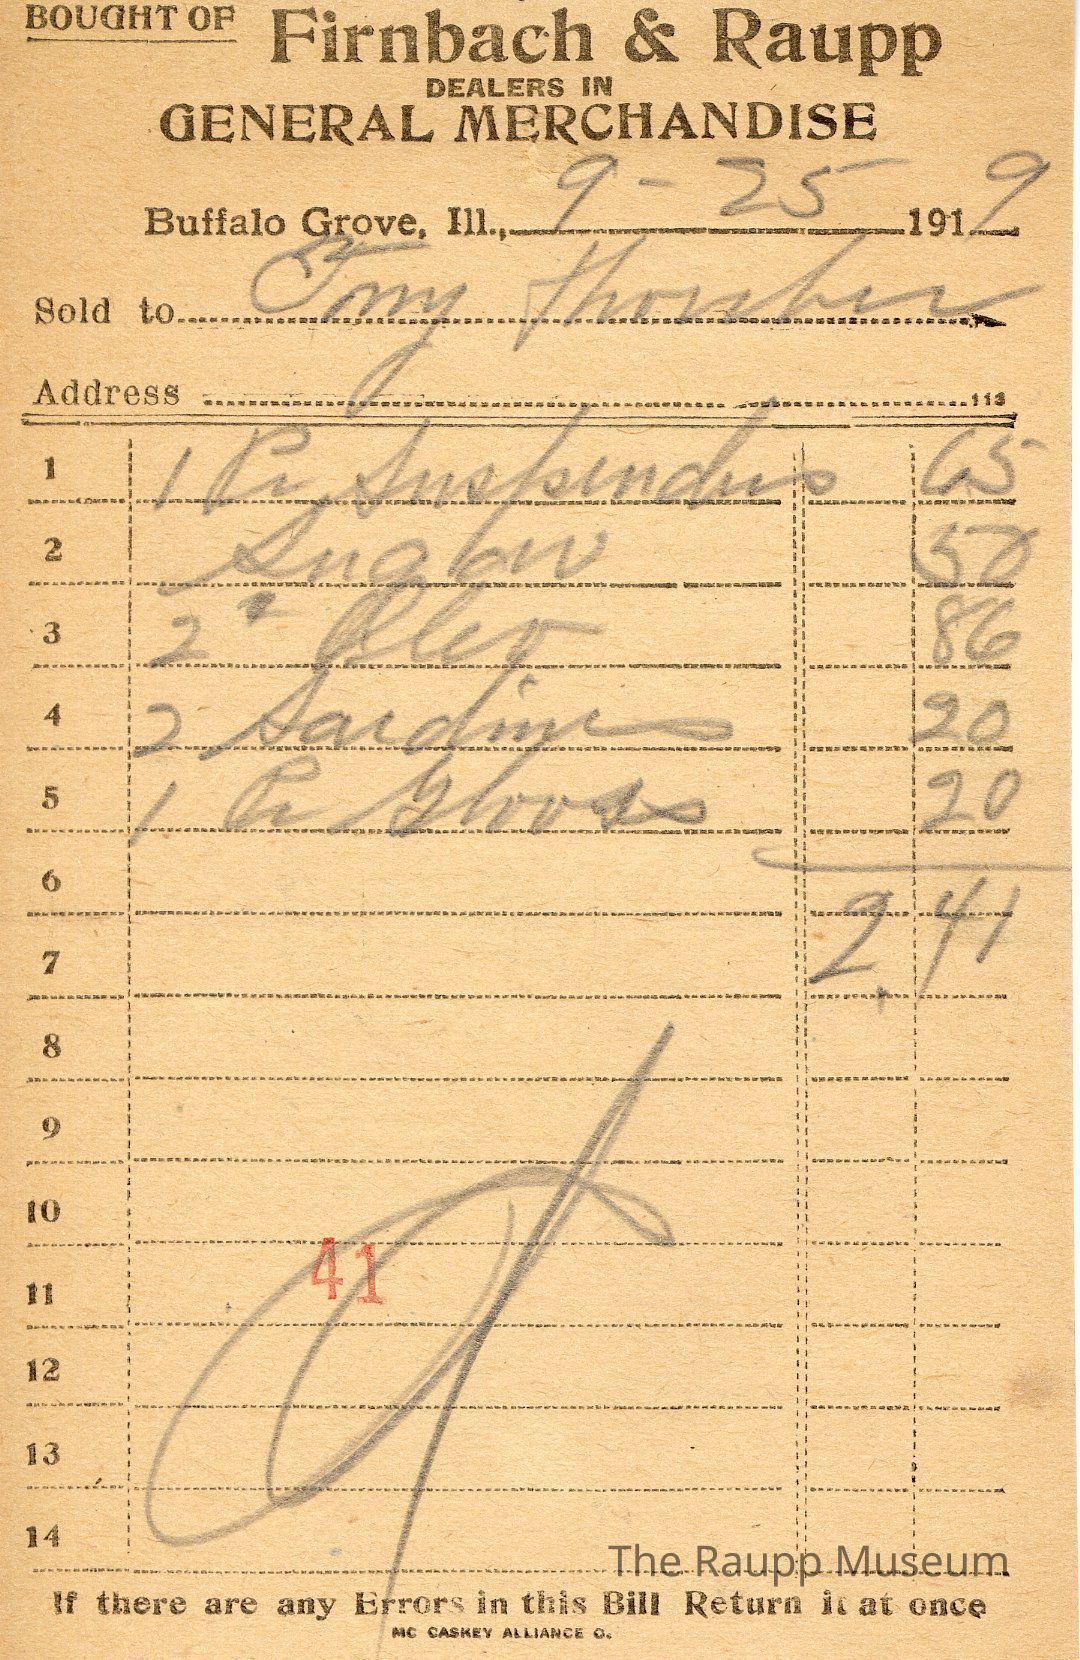 BOUGHT OF Firnbach & Raupp
DEALERS IN
GENERAL MERCHANDISE
Buffalo Grove, Ill., 9-25 1919
Sold to Tony
Address 113
1 1 Pr Suspenders 65
2 50
3 2 " Oleo 86
4 2 Sardines 20
5 1 Pr Gloves 20
6
7 2.41
8
9
10
11 41
12
13
14
The Raupp Museum
If there are any Errors in this Bill Return it at once
MC CASKEY ALLIANCE O.